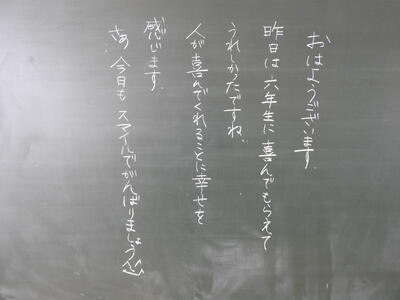 おはようございます。
昨日は六年生に喜んでもらえて
うれしかったですね。
人が喜んでくれることに幸せを
感じます。
さあ、今日もスマイルでがんばりましょう